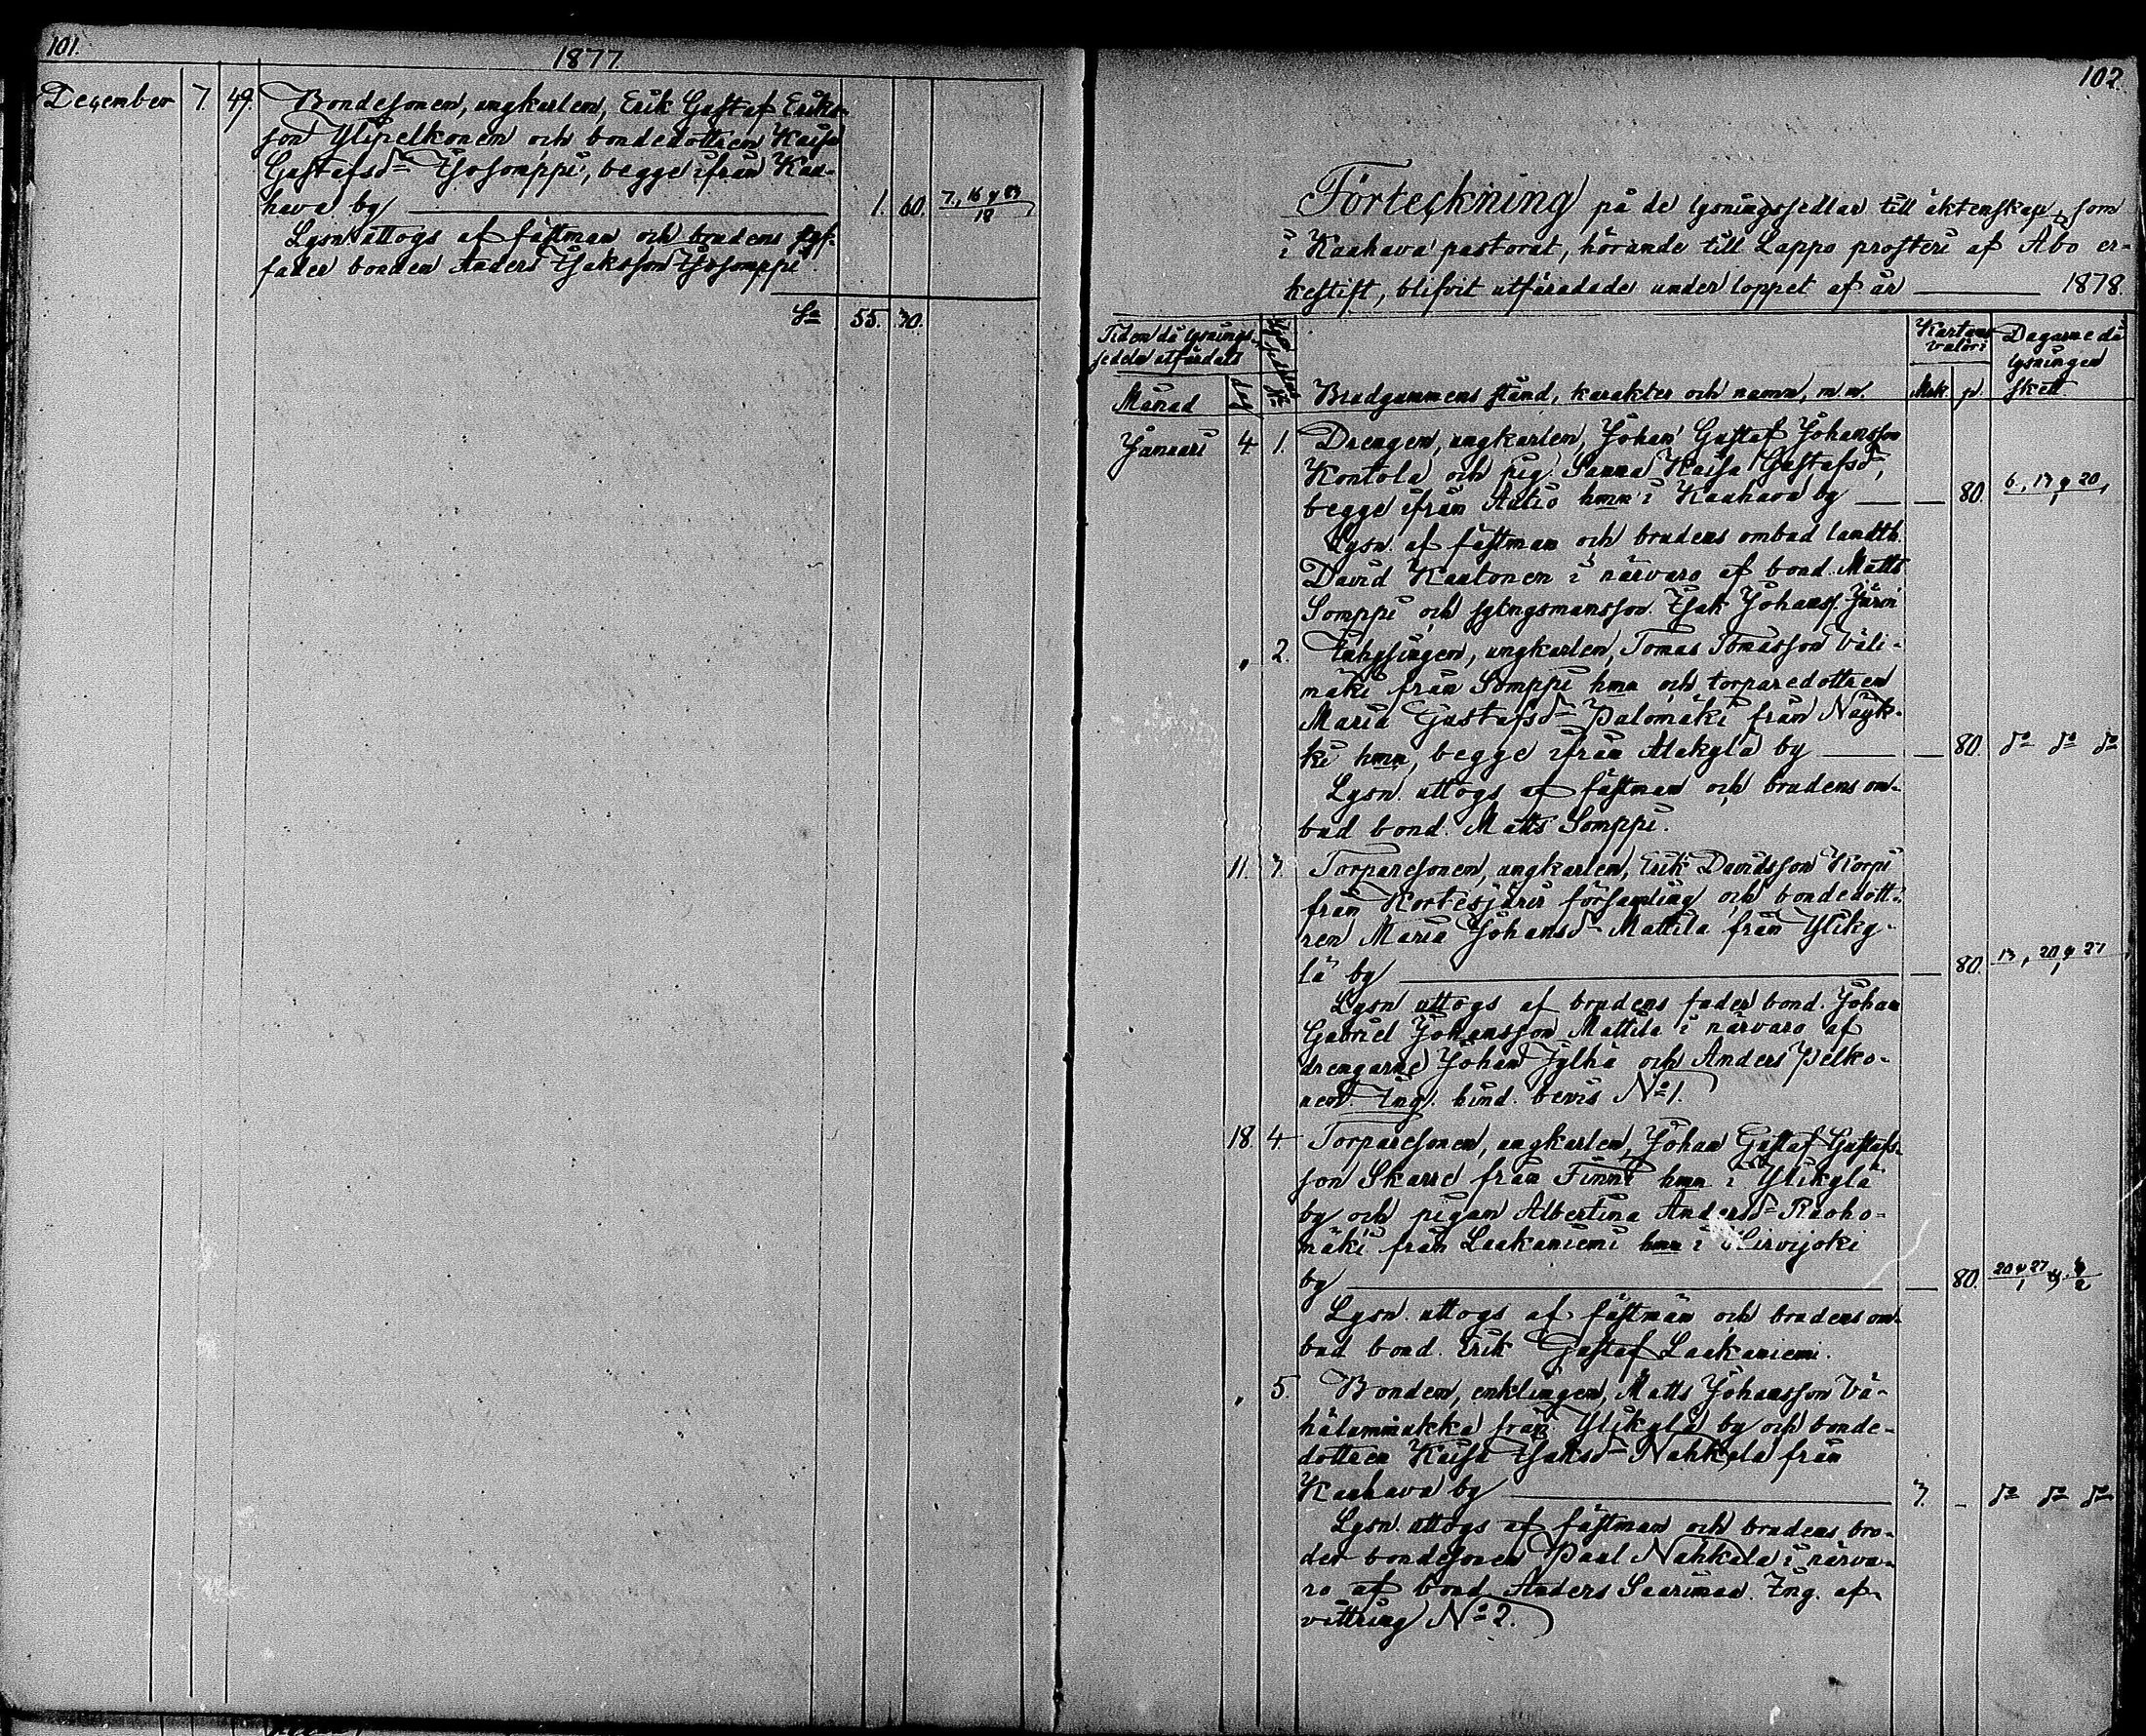 101.
1877.
December 7. 49. Bondesonen, ungkarlen, Erik Gustaf Eriks-
son Ylipelkonen och bondedottren Kaisa
Gustafsdr Isosomppi, begge ifrån Kau-
hava by 1. 60. 7., 16 & 23/12
Lysn. uttogs af fästman och brudens
fader bonden Anders Isaksson Isosomppi.
Sa 55. 30.
102.
Förteckning på de lysningssedlar till äktenskap, som
i Kauhava pastorat, hörande till Lappo prosteri af Åbo er-
kestift, blifvit utfärdade under loppet af år 1878.
Tiden då lysnings-
sedeln utfärdats
Kartans
valör:
Dagarne då
lysningen
skett.
Månad dag No Brudgummens stånd, karakter och namn, m.m. Mk. p.
Januari 4. 1. Drengen, ungkarlen, Johan Gustaf Johansson
Kontola och pig. Sanna Kaisa Gustafsdr,
begge ifrån Autio hmn i Kauhava by — 80. 6., 13 & 20/1
Lysn. af fästman och brudens ombud landtb.
David Kautonen i närvaro af bond. Matts
Somppi och sytngsmansson. Isak Johanss. Järvi
„ 2. Enklingen, ungkarlen, Tomas Tomasson Väli-
mäki från Somppi hmn och torparedottren
Maria Gustafsdr Palomäki från Näyk-
ki hmn, begge ifrån Alakylä by — 80. do do do
Lysn. uttogs af fästman och brudens om-
bud bond. Matts Somppi.
11. 3. Torparesonen, ungkarlen, Erik Davidsson Korpi
från Kortesjärvi församling och bondedott-
ren Maria Johansdr Mattila från Yliky-
lä by — 80. 13, 20 & 27/1
Lysn. uttogs af brudens fader bond. Johan
Gabriel Johansson Mattila i närvaro af
drengarne Johan Jylhä och Anders Pelko-
nen. Ing. hind. bevis No 1.
18. 4. Torparesonen, ungkarlen, Johan Gustaf Gustafs-
son Skarre från Finni hmn i Ylikylä
by och pigan Albertina Andersdr Ruoho-
mäki från Laakaniemi hmn i Hirvijoki
by — 80. 20 & 27/1 & 3/2
Lysn. uttogs af fästman och brudens om-
bud bond. Erik Gustaf Laakaniemi.
„ 5. Bonden, enklingen, Matts Johansson Vä-
hälummukka från Ylikylä by och bonde-
dottren Kaisa Isaksdr Nahkala från
Kauhava by 3. - do do do
Lysn. uttogs af fästman och brudens bro-
der bondesonen Paul Nahkala i närva-
ro af bond Anders Saarimaa. Ing. af-
vittring No 2.